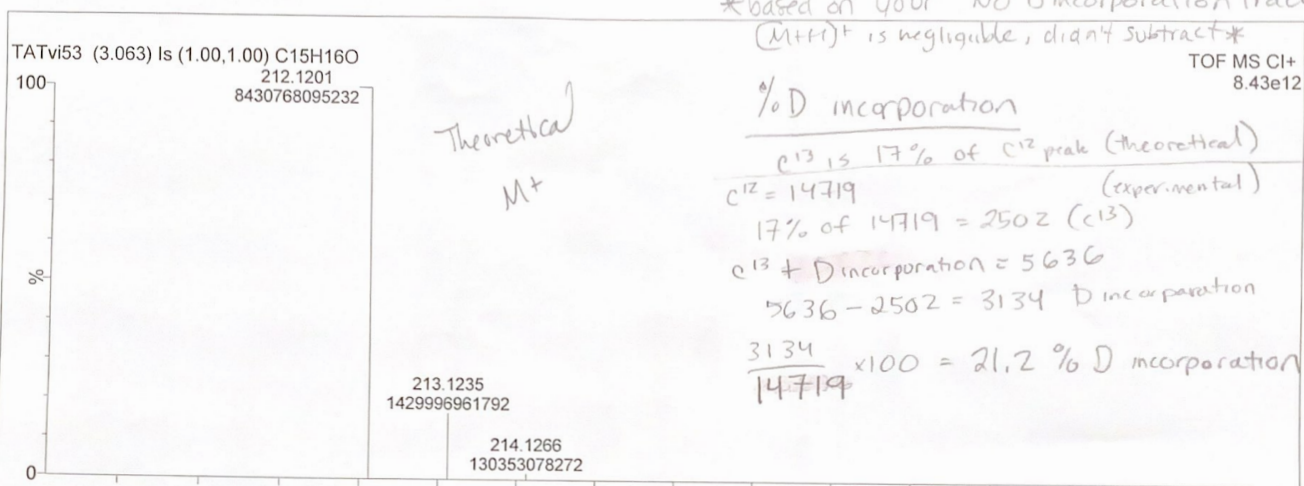 *based on your "No D incorporation trace
(M+H)+ is negliguble, didn't subtract*
TATvi53 (3.063) Is (1.00,1.00) C15H16O
TOF MS CI+
8.43e12
100
212.1201
8430768095232
Theoretical
M+
%
213.1235
1429996961792
214.1266
130353078272
0
% D incorporation
C13 is 17% of C12 peak (theoretical)
C12 = 14719 (experimental)
17% of 14719 = 2502 (C13)
C13 + D incorporation = 5636
5636 - 2502 = 3134 D incorporation
3134
14719
x100 = 21.2 % D incorporation